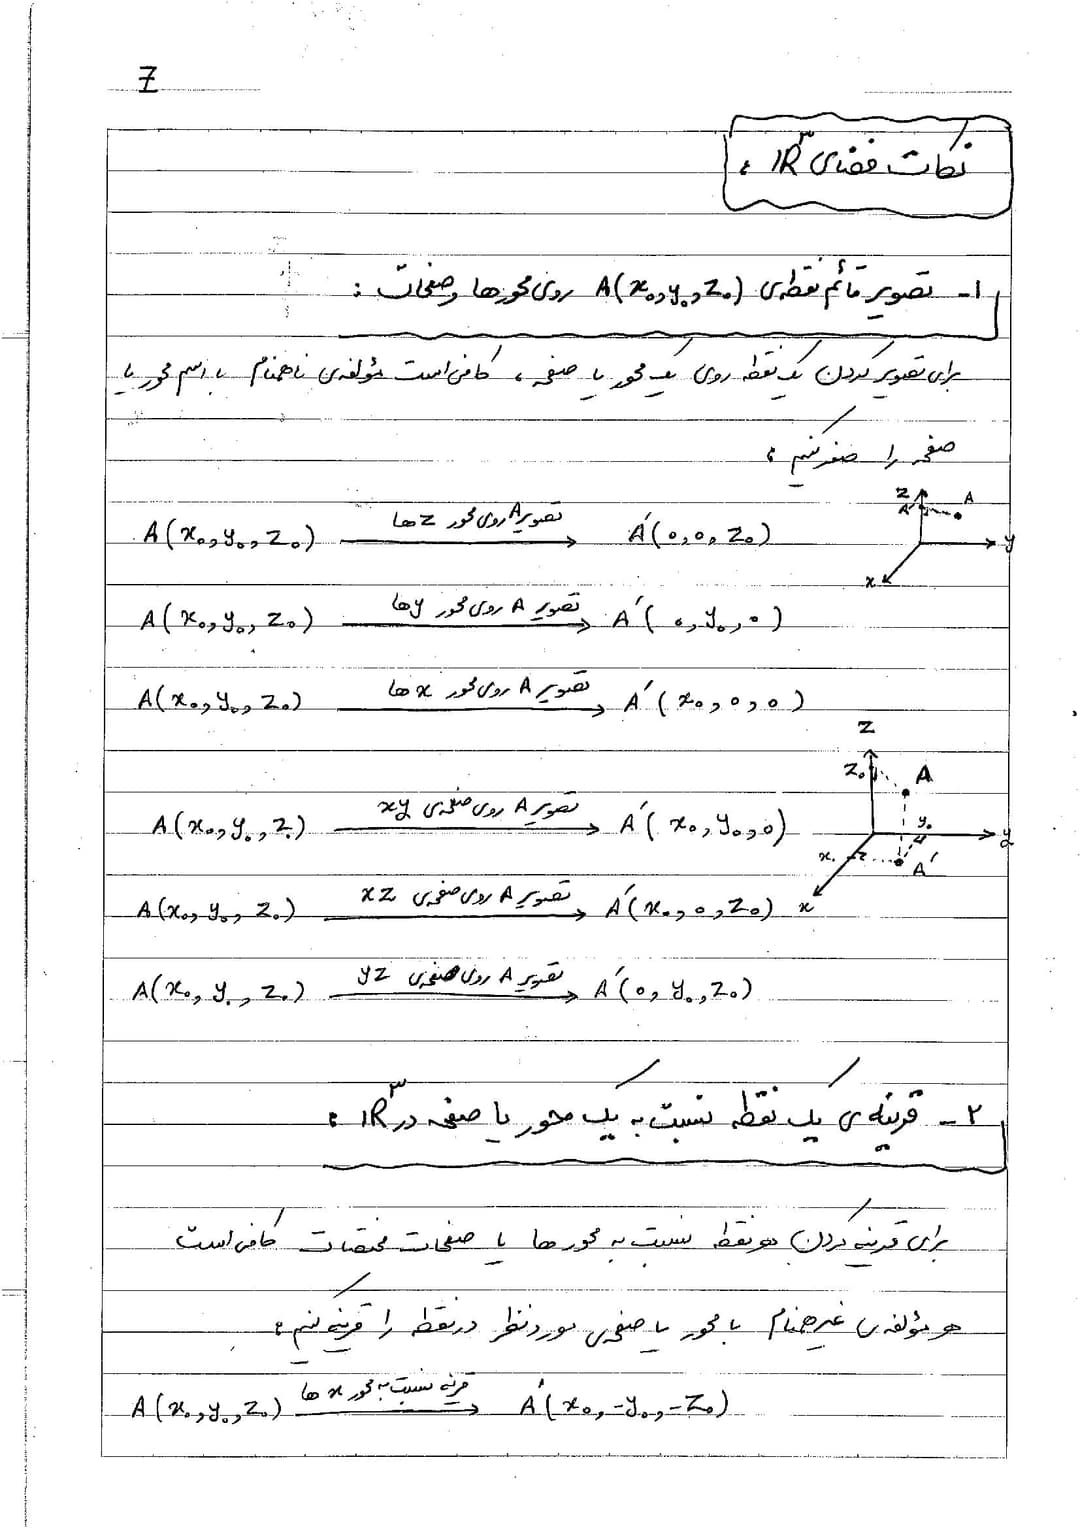 7
نکات فضای IR³ :
۱- تصویر قائم نقطه‌ی A(x₀, y₀, z₀) روی محورها و صفحات :
برای تصویر کردن یک نقطه روی یک محور یا صفحه ، کافی است مؤلفه‌ی ناهمنام با اسم محور یا
صفحه را صفر کنیم :
A(x₀, y₀, z₀) تصویر A روی محور z ها → A′(0, 0, z₀)
z A A′ y x
A(x₀, y₀, z₀) تصویر A روی محور y ها → A′(0, y₀, 0)
A(x₀, y₀, z₀) تصویر A روی محور x ها → A′(x₀, 0, 0)
z z₀ A y₀ y x₀ A′ x
A(x₀, y₀, z₀) تصویر A روی صفحه‌ی xy → A′(x₀, y₀, 0)
A(x₀, y₀, z₀) تصویر A روی صفحه‌ی xz → A′(x₀, 0, z₀)
A(x₀, y₀, z₀) تصویر A روی صفحه‌ی yz → A′(0, y₀, z₀)
۲- قرینه‌ی یک نقطه نسبت به یک محور یا صفحه در IR³ :
برای قرینه کردن هر نقطه نسبت به محورها یا صفحات مختصات کافی است
هر مؤلفه‌ی غیر همنام با محور یا صفحه‌ی مورد نظر در نقطه را قرینه کنیم :
A(x₀, y₀, z₀) قرینه نسبت به محور x ها → A′(x₀, -y₀, -z₀)